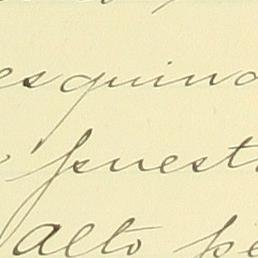 esquina
puest
Alto pe